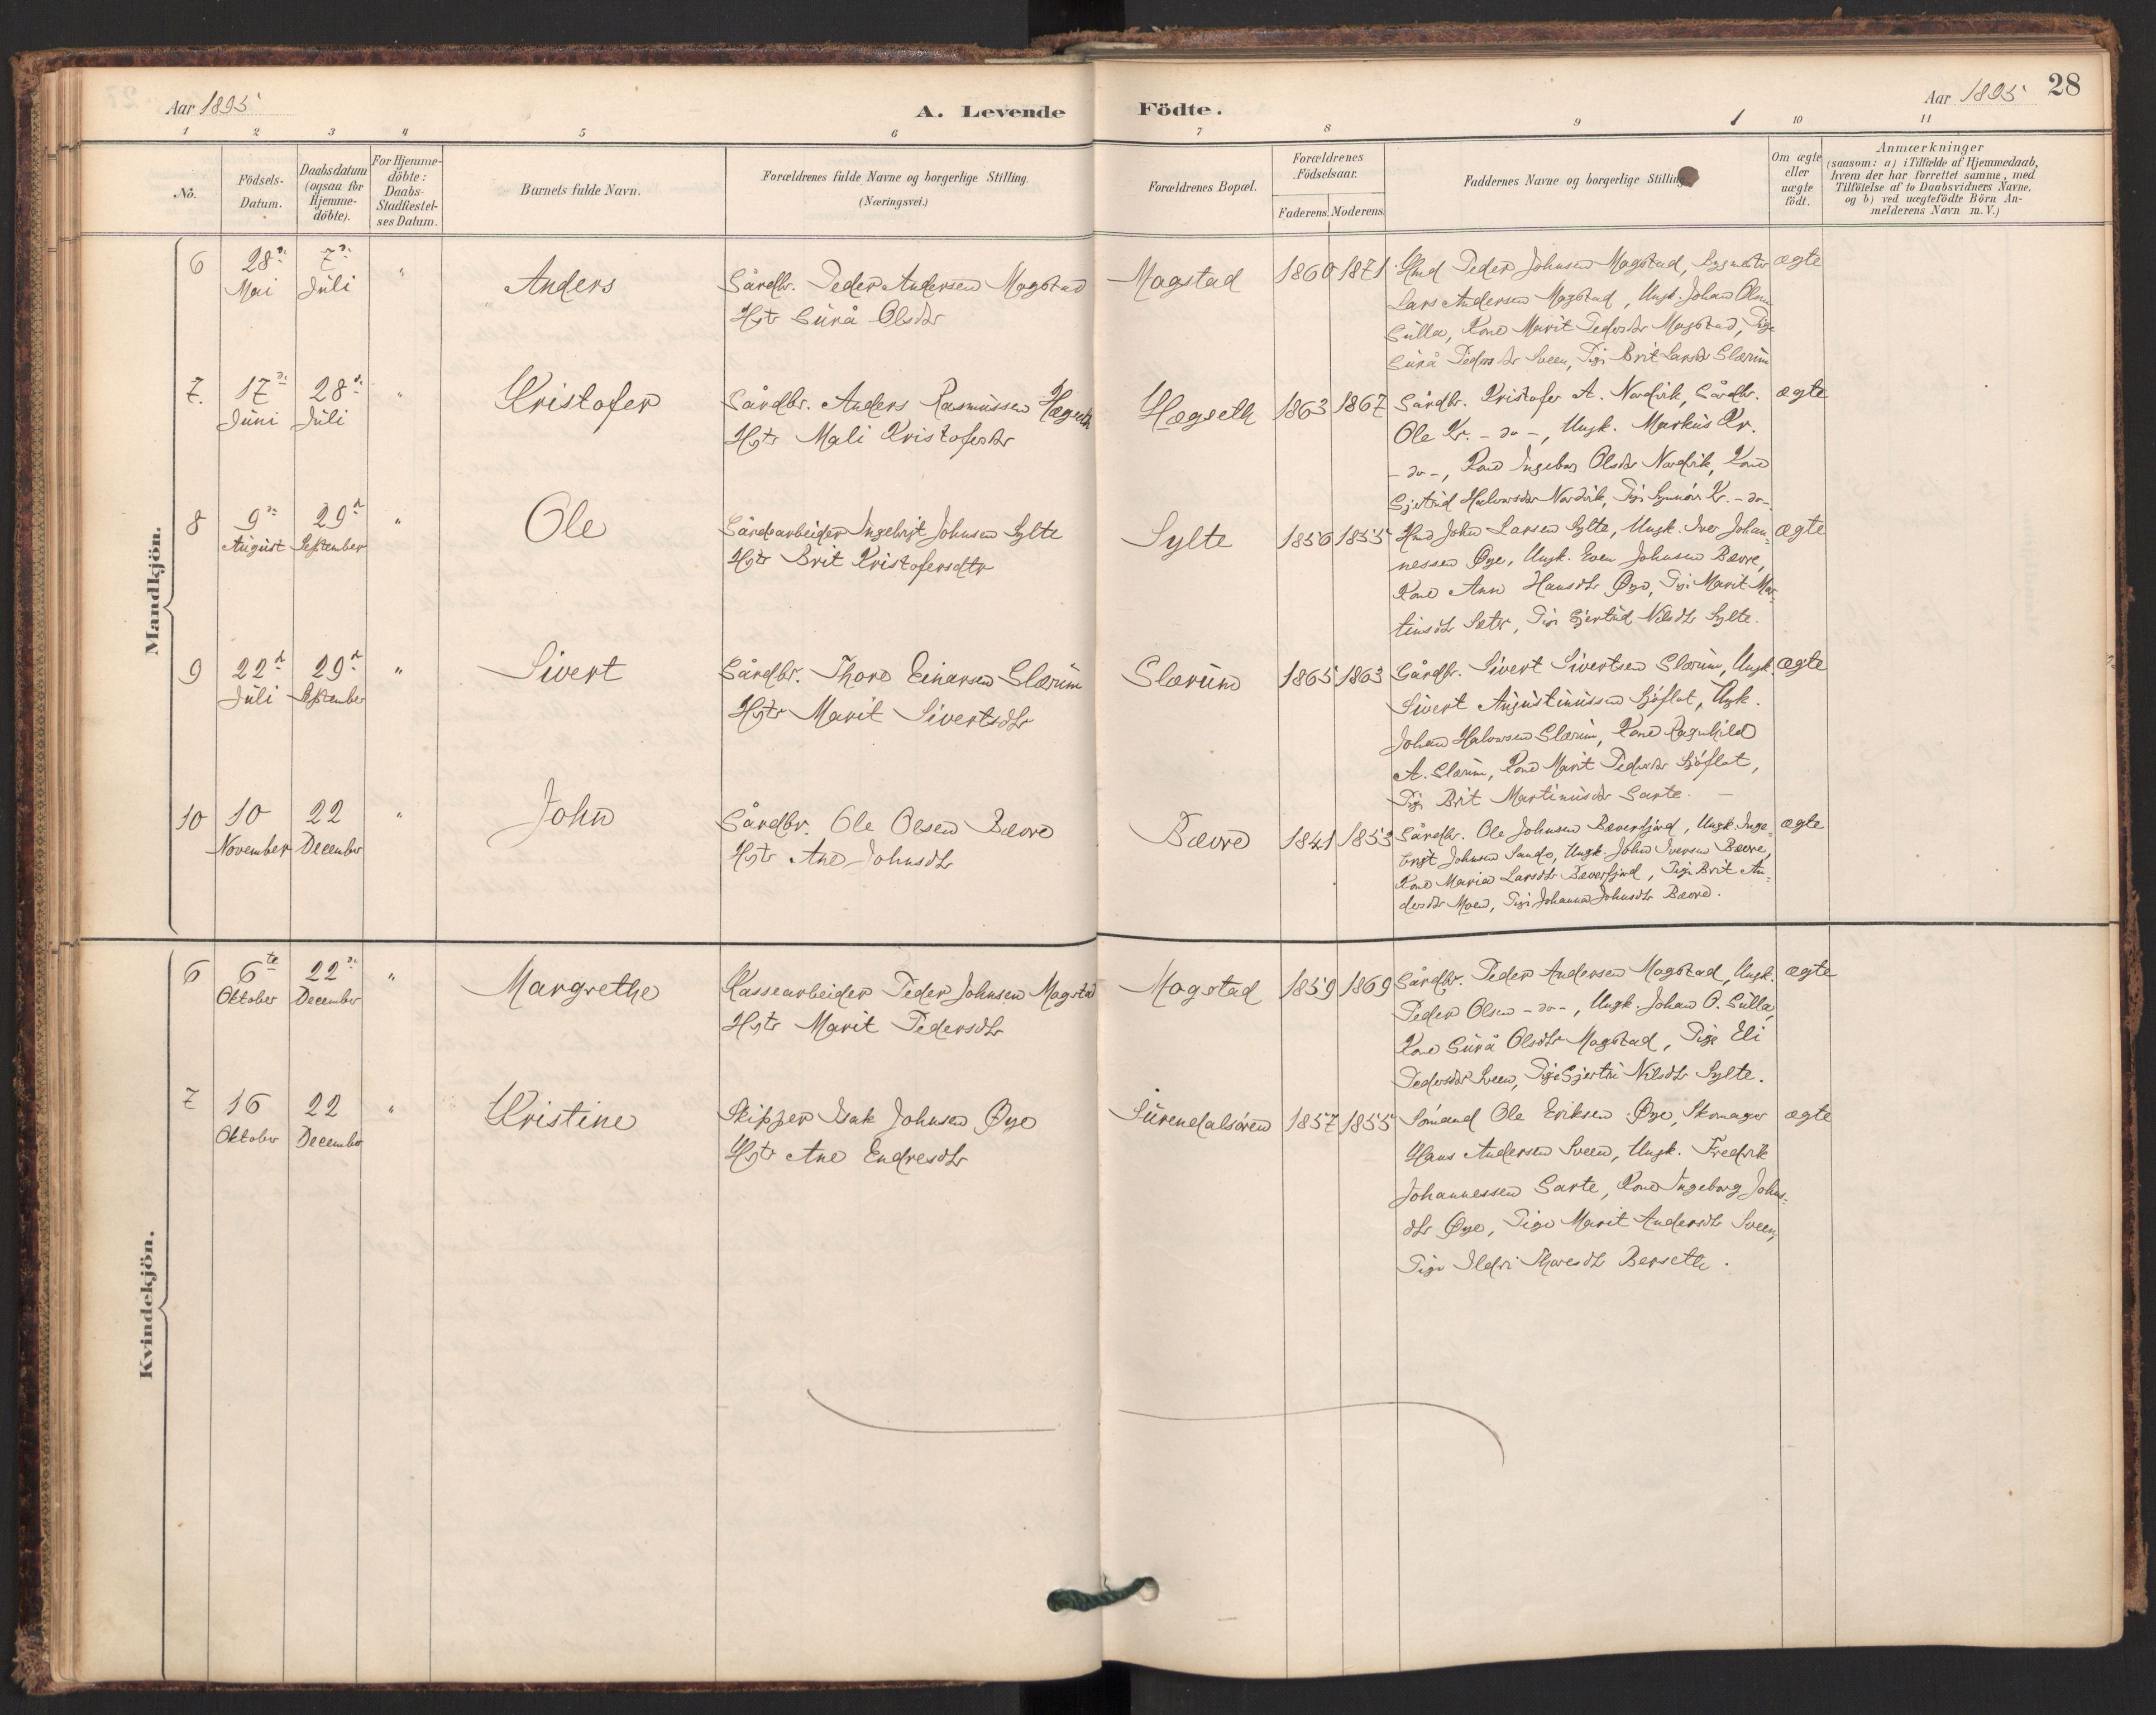 Aar 1895
A. Levende
Födte.
Aar 1895
28
1 2 3 4 5 6 7 8 9 10 11
No.
Födsels-
Datum.
Daabsdatum
(ogsaa for
Hjemme-
döbte).
For Hjemme-
döbte:
Daabs-
Stadfæstel-
ses Datum.
Barnets fulde Navn.
Forældrenes fulde Navne og borgerlige Stilling.
(Næringsvei.)
Forældrenes Bopæl.
Forældrenes
Födselsaar.
Faderens. Moderens.
Faddernes Navne og borgerlige Stilling.
Om ægte
eller
uægte
födt.
Anmærkninger
(saasom: a) i Tilfælde af Hjemmedaab,
hvem der har forrettet samme, med
Tilföielse af to Daabsvidners Navne.
og b) ved uægtefödte Börn An-
melderens Navn m. V.)
Mandkjön.
6
28de
Mai
7de
Juli
"
Anders
Gårdbr. Peder Andersen Magstad
Hstr Gurå Olsdtr
Magstad
1860 1871
Hmd Peder Johnsen Magstad, Bygmster
Lars Andersen Magstad, Ungk. Johan Olsen
Gulla, Kone Marit Pedersdtr Magstad, Pige
Gurå Pedersdtr Sveen, Pige Brit Larsdtr Glærum
ægte
7.
17de
Juni
28de
Juli
"
Kristofer
Gårdbr. Anders Rasmussen Hægseth
Hstr Mali Kristofersdtr
Hægseth
1863 1867
Gårdbr. Kristofer A. Nordvik, Gårdbr.
Ole Kr. - do -, Ungk. Markus Kr.
- do -, Kone Ingebor Olsdtr Nordvik, Kone
Gjertrud Halvorsdtr Nordvik, Pige Synnøv Kr. - do -
ægte
8
9de
August
29de
September
"
Ole
Gårdarbeider Ingebrigt Johnsen Sylte
Hstr Brit Kristofersdtr
Sylte
1856 1855
Hmd John Larsen Sylte, Ungk. Iver Johan-
nessen Øye, Ungk. Even Johnsen Bævre,
Kone Ann Hansdtr Øye, Pige Marit Mar-
tinsdtr Sæter, Pige Gjertrud Nilsdtr Sylte.
ægte
9
22de
Juli
29de
September
"
Sivert
Gårdbr. Thore Einarsen Glærum
Hstr Marit Sivertsdtr
Glærum
1865 1863
Gårdbr. Sivert Sivertsen Glærum, Ungk.
Sivert Augustinussen Sjøflot, Ungk.
Johan Halvorsen Glærum, Kone Ragnhild
A. Glærum, Kone Marit Pedersdtr Sjøflot,
Pige Brit Martinusdtr Garte. -
ægte
10
10
November
22
December
"
John
Gårdbr. Ole Olsen Bævre
Hstr Ane Johnsdtr
Bævre
1841 1853
Gårdbr. Ole Johnsen Bæverfjord, Ungk. Inge-
brigt Johnsen Sande, Ungk. John Iversen Bævre,
Kone Maria Larsdtr Bæverfjord, Pige Brit An-
dersdtr Moen, Pige Johanna Johnsdtr Bævre.
ægte
Kvindekjön.
6
6te
Oktober
22de
December
"
Margrethe
Kassearbeider Peder Johnsen Magstad
Hstr Marit Pedersdtr
Magstad
1859 1869
Gårdbr. Peder Andersen Magstad, Ungk.
Peder Olsen - do -, Ungk. Johan O. Gulla,
Kone Gurå Olsdtr Magstad, Pige Eli
Pedersdtr Sveen, Pige Gjertru Nilsdtr Sylte.
ægte
7
16
Oktober
22
December
"
Kristine
Skipper Isak Johnsen Øye
Hstr Ane Endresdtr
Surendalsøren
1857 1855
Sømand Ole Eriksen Øye, Skomager
Hans Andersen Sveen, Ungk. Fredrik
Johannessen Garte, Kone Ingeborg Johns-
dtr Øye, Pige Marit Andersdtr Sveen,
Pige Ildri Thoresdtr Bersetth.
ægte